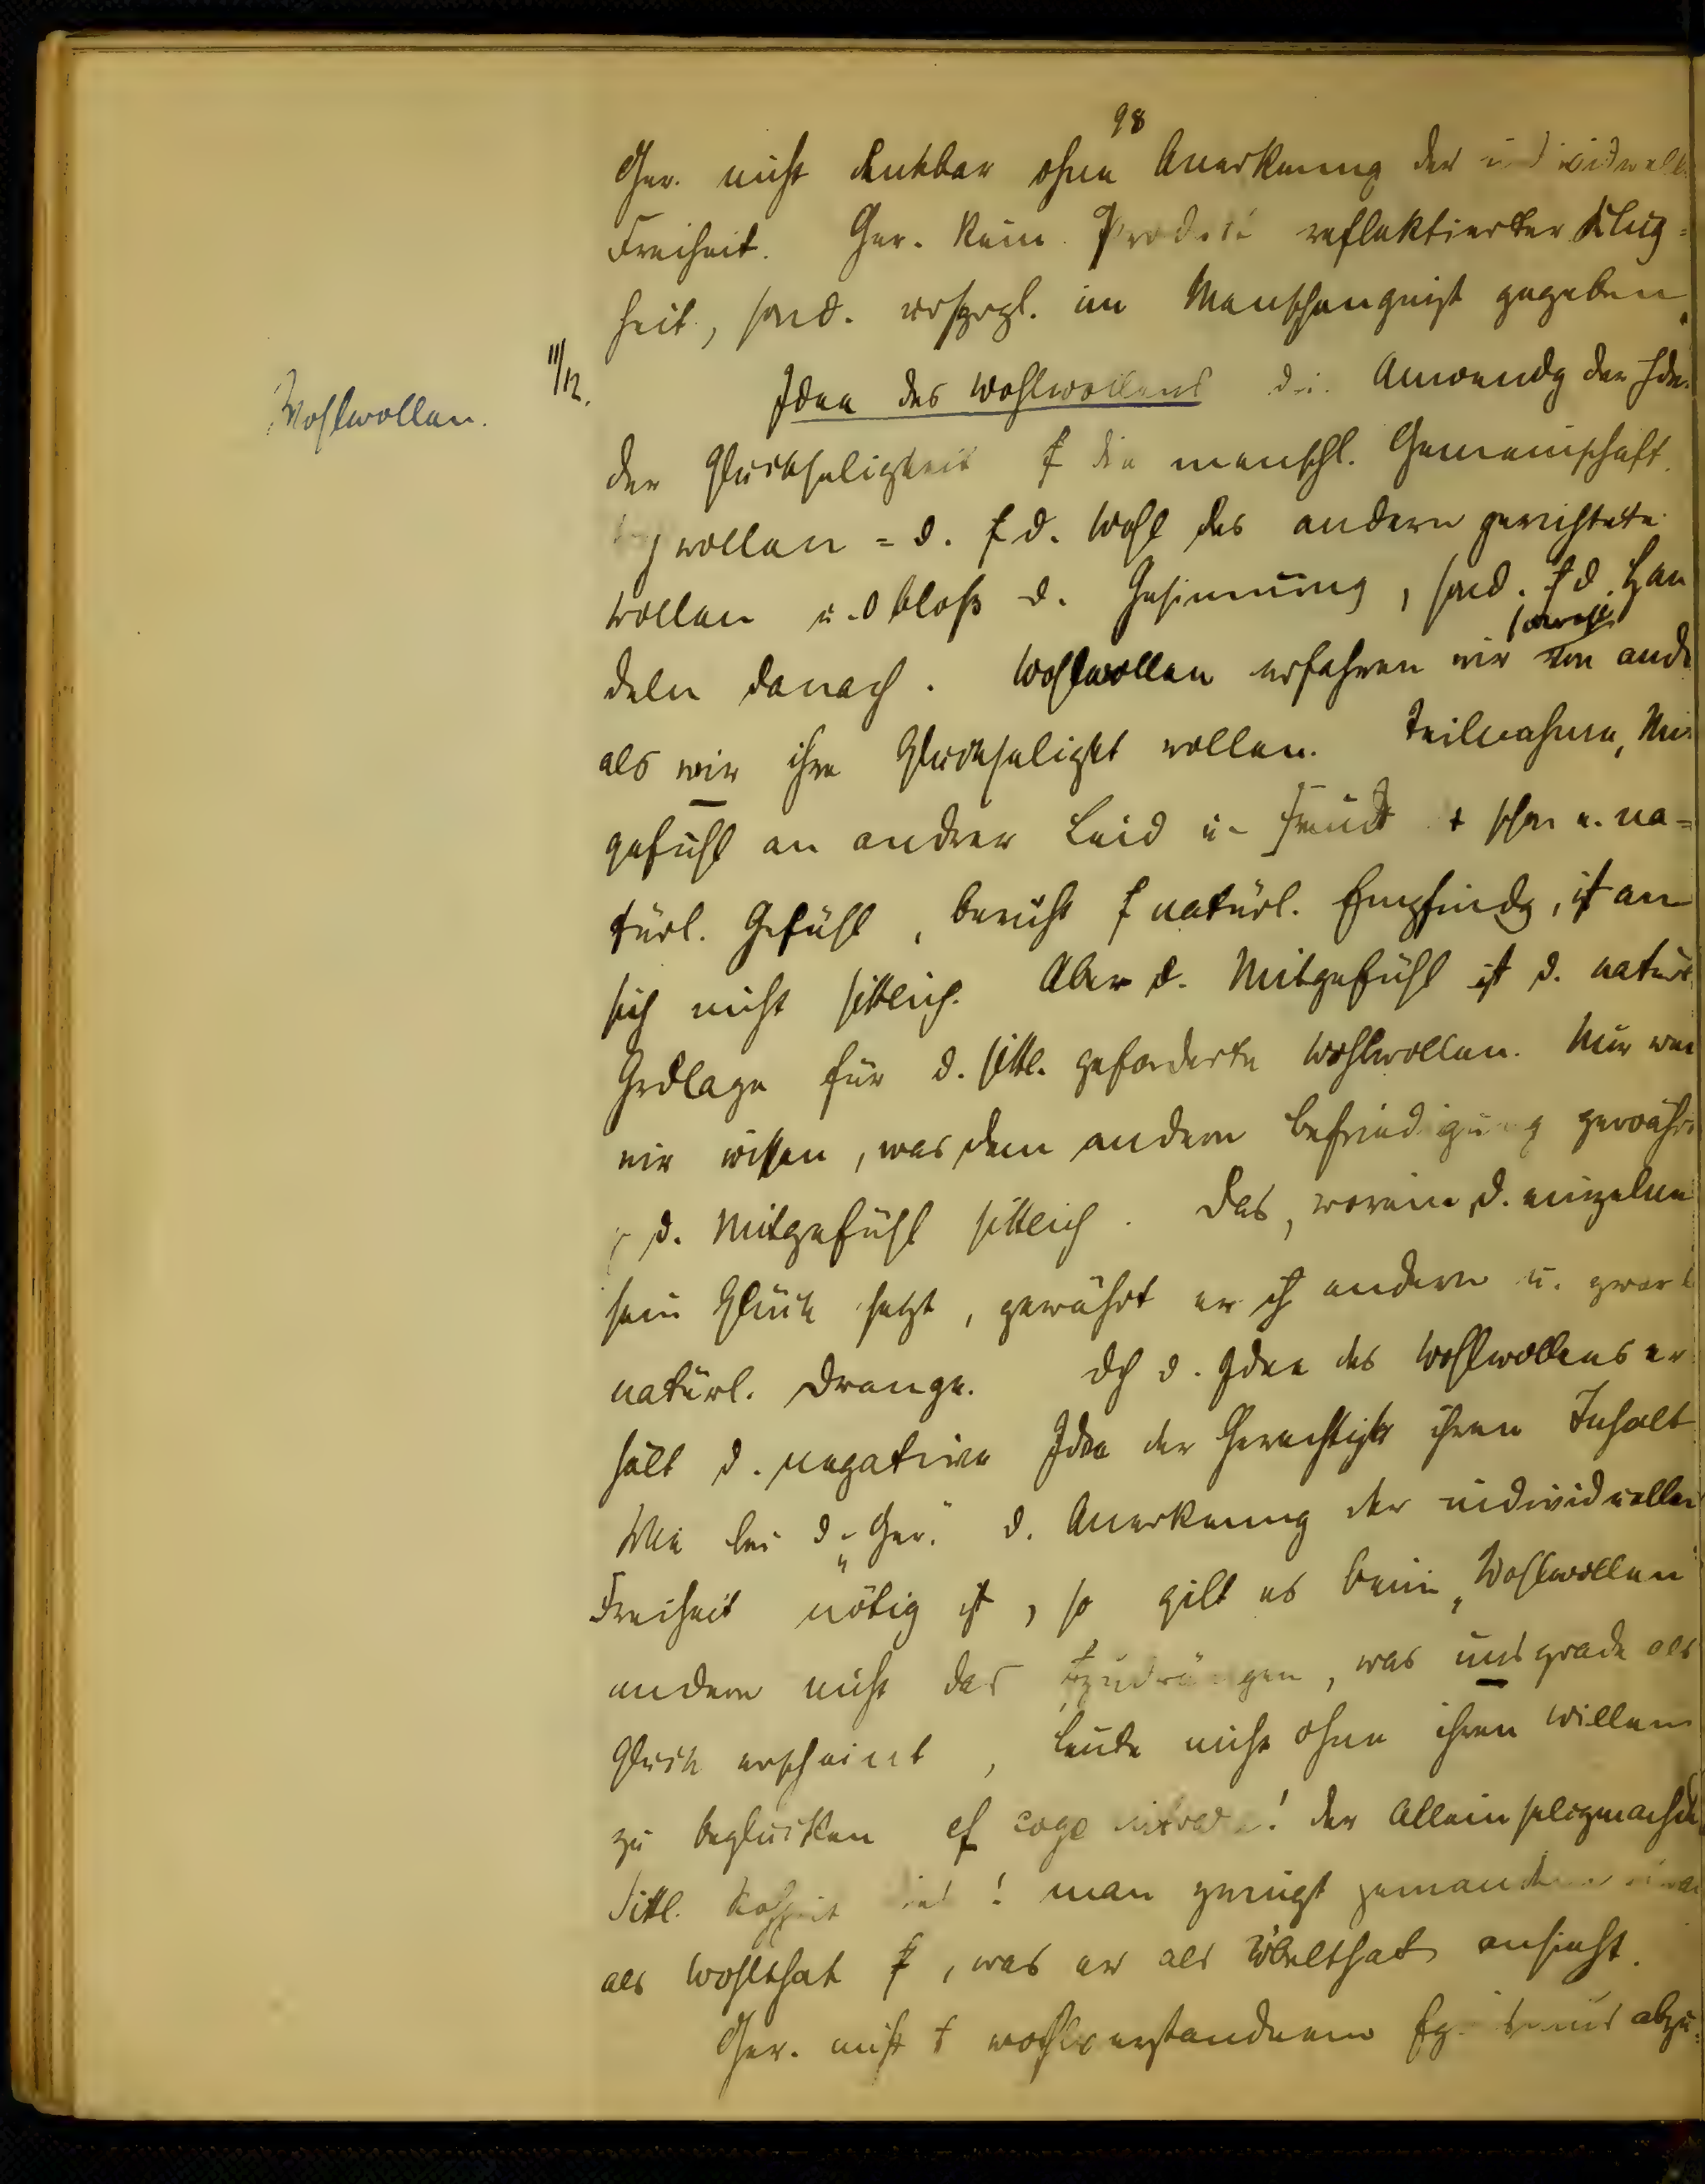 98
Ger. nicht denkbar ohne Anerkennung der individuell
Freiheit. Ger. kein Produkt reflektierter Klug-
heit, sond. urspgl. im Menschengeist gegeben.
11/12.
Wohlwollen.
Idee des Wohlwollens die Anwendg der Idee
der Glückseligkeit f die menschl. Gemeinschaft.
wollen = d. f d. Wohl des andern gerichtete
Wollen bloß d. Gesinnung, sond. f d. Han
soweit
deln danach. Wohlwollen erfahren wir von ande
als wir ihre Glückseligkt wollen. Teilnahme, Mit
gefühl an andrer Leid u. Freude e. na-
türl. Gefühl, beruht f natürl. Empfindg, ist an
sich nicht sittlich. Aber d. Mitgefühl ist d. natürl
Grdlage für d. sittl. geforderte Wohlwollen. Nur wen
wir wissen, was dem andern Befriedigung gewährt
d. Mitgefühl sittlich. Das, worein d. einzelne
sein Glück setzt, gewährt er andern u. zwar
natürl. Drange. Dch d. Idee des Wohlwollens er
hält d. negative Idee der Gerechtigkt ihren Inhalt
Wie bei d. „Ger." d. Anerkennung der individuellen
Freiheit nötig ist, so gilt es beim „Wohlwollen"
andern nicht das fzudrängen, was uns grade als
Glück erscheint, Leute nicht ohne ihren Willen
zu beglücken cf coge intrare! der Alleinseligmachde
Sittl. Rohheit ! man zwingt jemandem etwas
als Wohlthat f, was er als Übelthat ansieht.
Ger. nicht f wohlverstandenem Egoismus abzu-